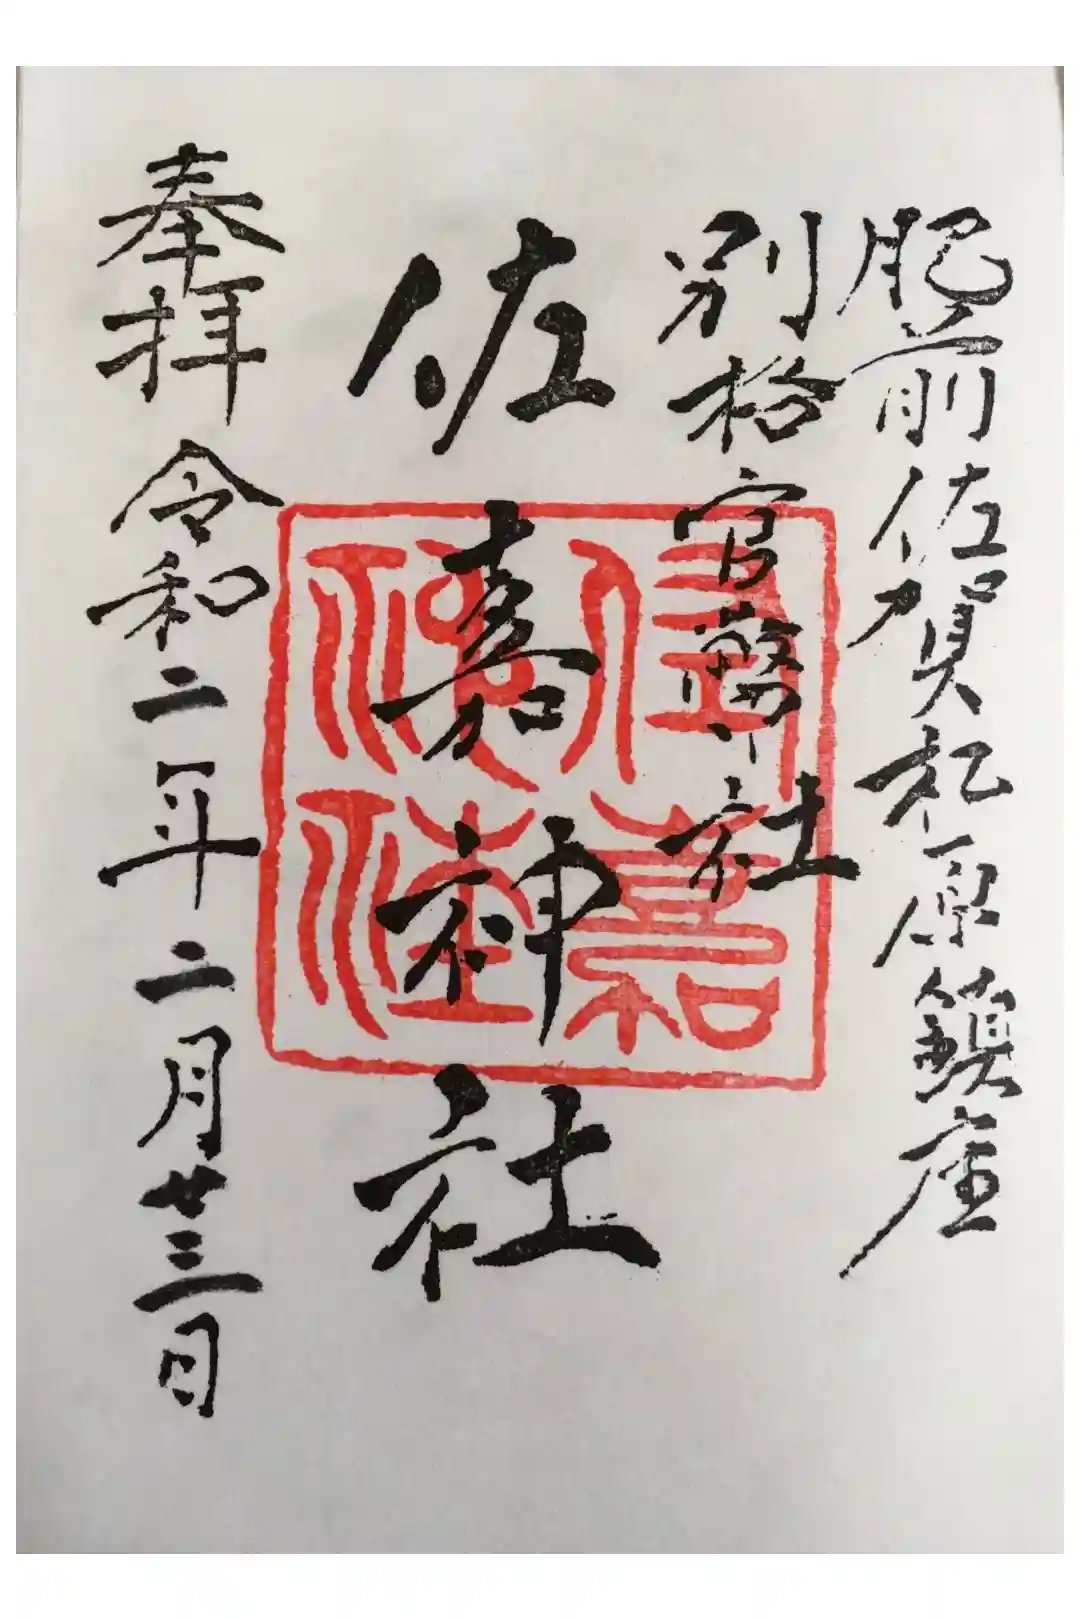 肥前佐賀松原鎮座
別格官幣社
佐嘉神社
奉拝 令和二年二月廿三日
佐嘉神社